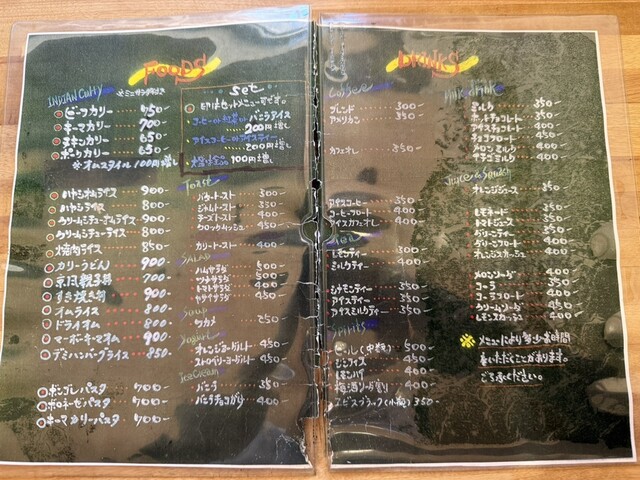 FOODS
INDIAN Curry
ビーフカリー 750
キーマカリー 700
チキンカリー 650
ポークカリー 650
※オムスタイル 100円増し
Set
印はセットメニュー可です。
コーヒーor紅茶or バニラアイス
200円増し
アイスコーヒーorアイスティー
200円増し
100円増し
ハヤシオムライス 900
ハヤシライス 800
クリームシチューオムライス 900
クリームシチューライス 800
焼肉ライス 850
カリーうどん 900
京風親子丼 700
すき焼き丼 900
オムライス 800
ドライオム 800
マーボーキーマオム 900
デミハンバーグライス 850
ボンゴレパスタ 700
ボロネーゼパスタ 700
キーマカリーパスタ 700
Toast
バタートースト 300
ジャムトースト 350
チーズトースト 400
クロックムッシュ 450
カリートースト 400
SALAD
ハムサラダ 500
ツナサラダ 500
トマトサラダ 400
ヤサイサラダ 450
Soup
ワカメ 250
Yogurt
オレンジヨーグルト 450
ストロベリーヨーグルト 450
Ice Cream
バニラ 350
バニラチョコがけ 400
DRINKS
Coffee
ブレンド 300
アメリカン 350
カフェオレ 350
アイスコーヒー 350
コーヒーフロート 400
アイスカフェオレ 400
Tea
レモンティー 300
ミルクティー 350
シナモンティー 350
アイスティー 350
アイスミルクティー 350
Spirits
ビール(中瓶) 500
ジンフィズ 450
レモンハイ 400
梅酒ソーダ割り 400
エビスブラック(小瓶) 350
Milk drink
ミルク 350
ホットチョコレート 400
アイスチョコレート 400
チョコフロート 450
メロンミルク 400
イチゴミルク 400
Juice & Squash
オレンジジュース 350
レモネード 350
トマトジュース 350
グリーンティー 350
グリーンフロート 400
オレンジスカッシュ 400
メロンソーダ 400
コーラ 350
コーラフロート 400
クリームソーダ 450
レモンスカッシュ 400
※メニューにより多少お時間
をいただくことがあります。
ご了承ください。